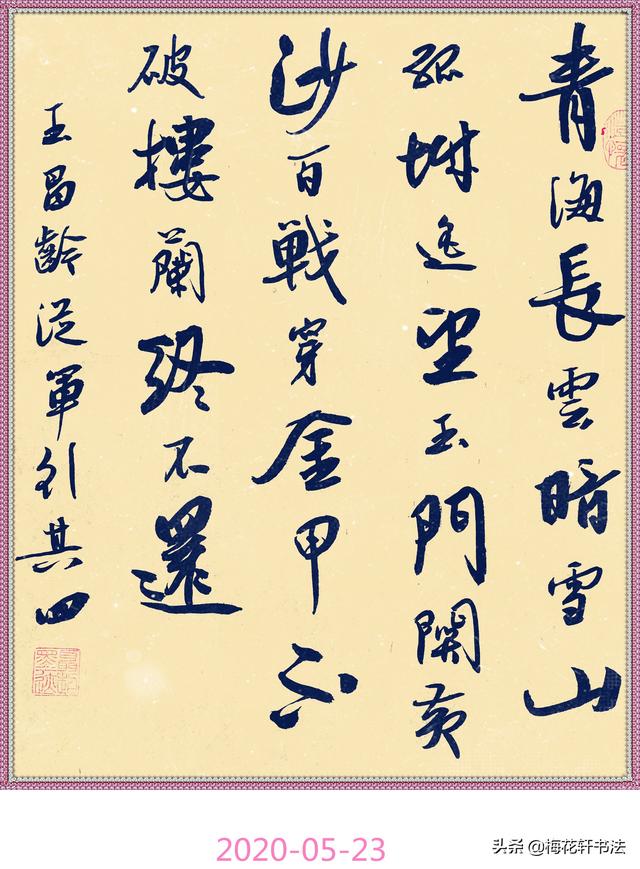 青海長雲暗雪山
孤城遙望玉門關黃
沙百戦穿金甲不
破樓蘭終不還
王昌齡從軍行其四
2020-05-23
头条 @梅花轩书法